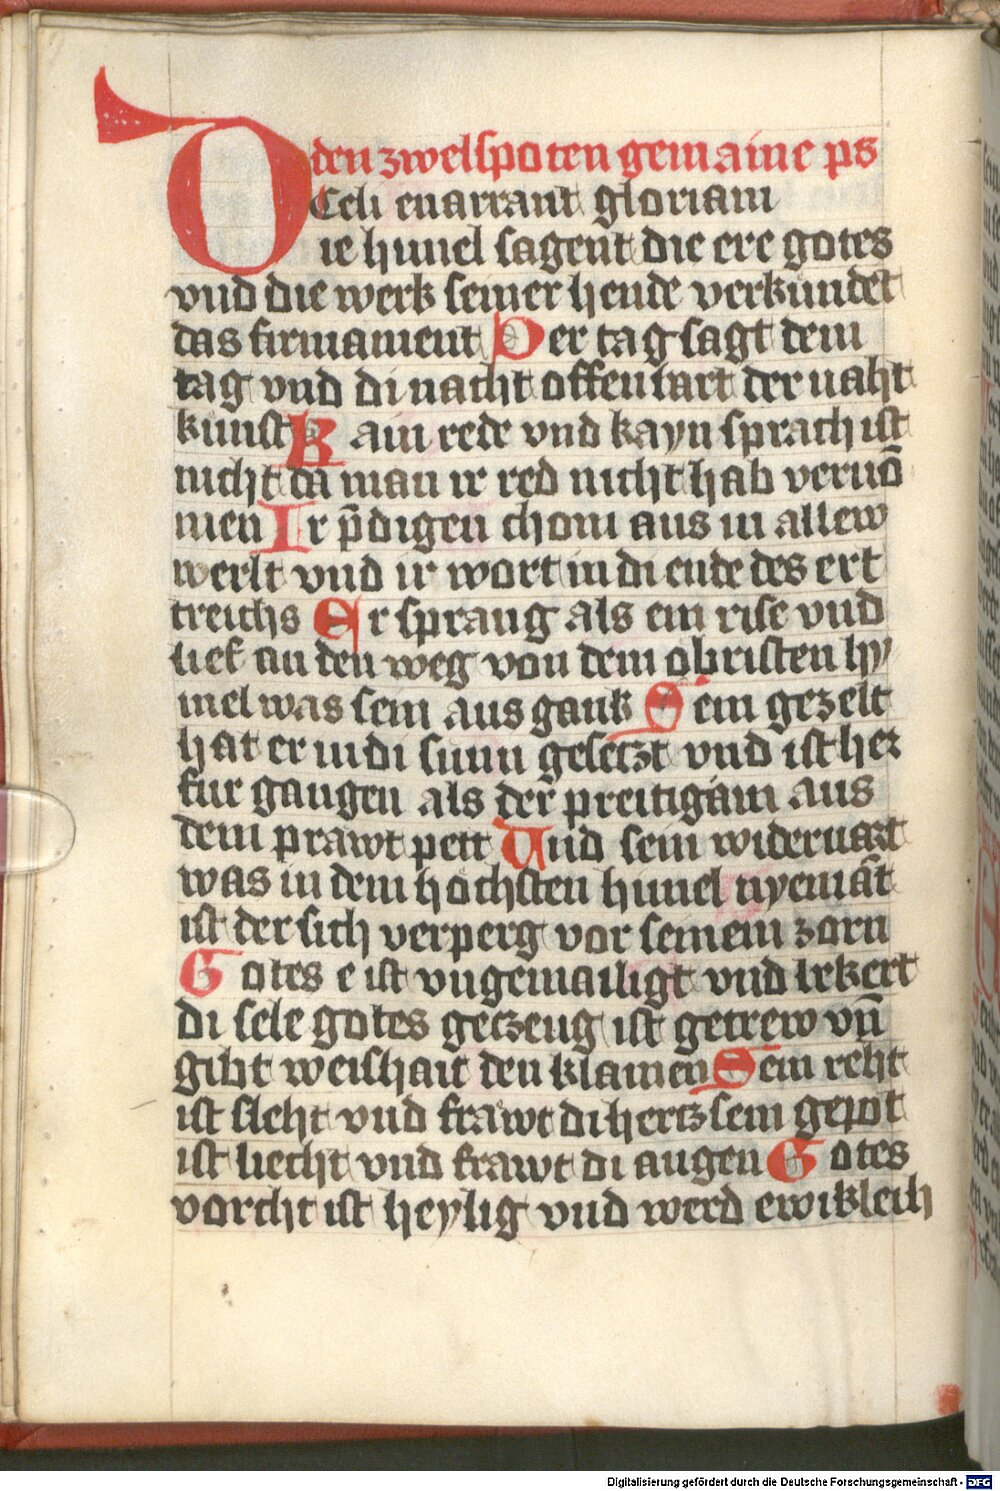 den zwelfpoten gemaine ps
Celi enarrant gloriam
Die himel sagent die ere gotes
vnd die werk seiner hende verkundet
das firmament Der tag sagt dem
tag vnd di nacht offenwart der naht
kunst Kain rede vnd kayn sprach ist
nicht da man ir red nicht hab vernō
men Ir p̄digen chom aus in allew
werlt vnd ir wort in di ende des ert
treichs Er sprang als ein rise vnd
lief an den weg von dem obristen hy
mel was sein aus gank Sein gezelt
hat er in di sunn gesetzt vnd ist her
fur gangen als der preitigam aus
dem prawt pett Und sein widervart
was in dem hochsten himel nyemāt
ist der sich verperg vor seinem zorn
Gotes e ist vngemailigt vnd bekert
di sele gotes geczeug ist getrew vn̄
gibt weishait den klainen Sein reht
ist sleht vnd frawt di hertz sein gepot
ist liecht vnd frawt di augen Gotes
vorcht ist heylig vnd werd ewikleich
Digitalisierung gefördert durch die Deutsche Forschungsgemeinschaft - DFG